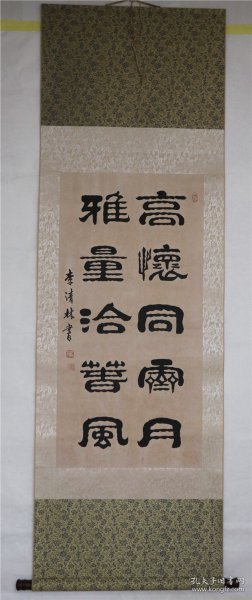 高懷同霽月
雅量洽萅風
李清林書
孔夫子旧书网